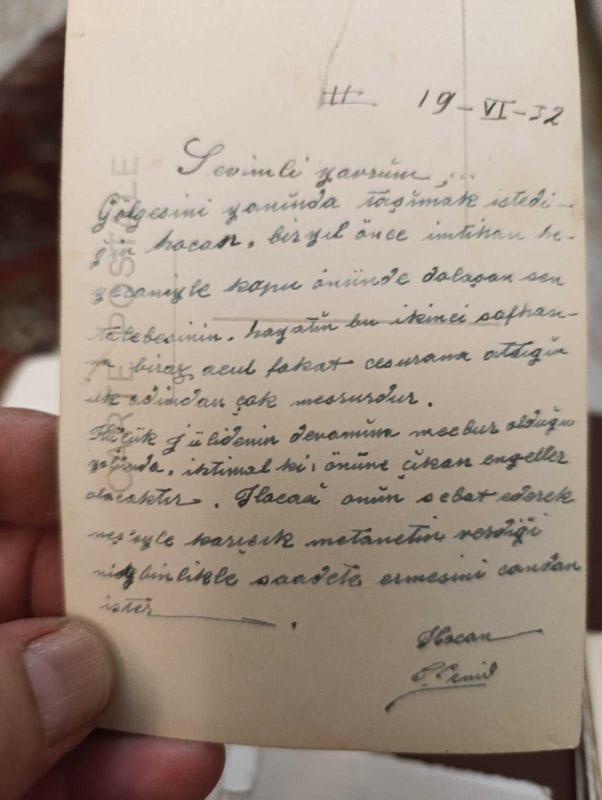 19-VI-32
Sevimli yavrum,...
Gölgesini yanında taşımak istedi-
ğin hocan, bir yıl önce imtihan he-
yecaniyle kapu önünde dolaşan sen
talebesinin, hayatın bu ikinci safhası-
na biraz acul fakat cesurana atdığın
ilk adımdan çok mesrurdur.
Küçük Gülidenin devamına mecbur olduğu
yolunda, ihtimal ki, önüne çıkan engeller
olacaktır. Hocaā onun sebat ederek
neş'eyle karışık metanetin verdiği
nikbinlikle saadete ermesini candan
ister
Hocan
CARTE POSTALE